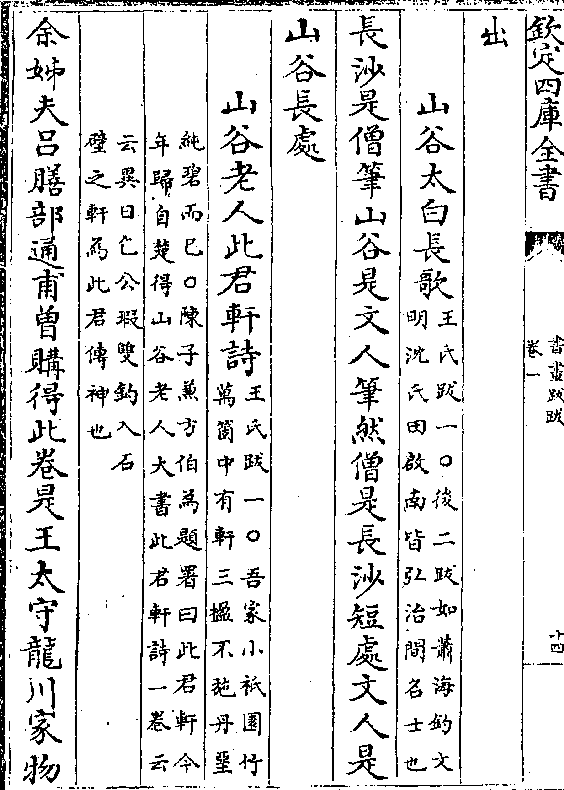 欽定四庫全書
書畫跋跋
卷一
十四
出
山谷太白長歌
王氏跋一〇後二跋如蕭海釣文
明沈氏田啟南皆弘治間名士也
長沙是僧筆山谷是文人筆然僧是長沙短處文人是
山谷長處
山谷老人此君軒詩
王氏跋一〇吾家小祇園竹
萬箇中有軒三楹不施丹堊
純碧而已〇陳子兼方伯為題署曰此君軒今
年歸自楚得山谷老人大書此君軒詩一卷云
云異日乞公瑕雙鈎入石
壁之軒為此君傳神也
余姊夫呂膳部通甫曾購得此卷是王太守龍川家物